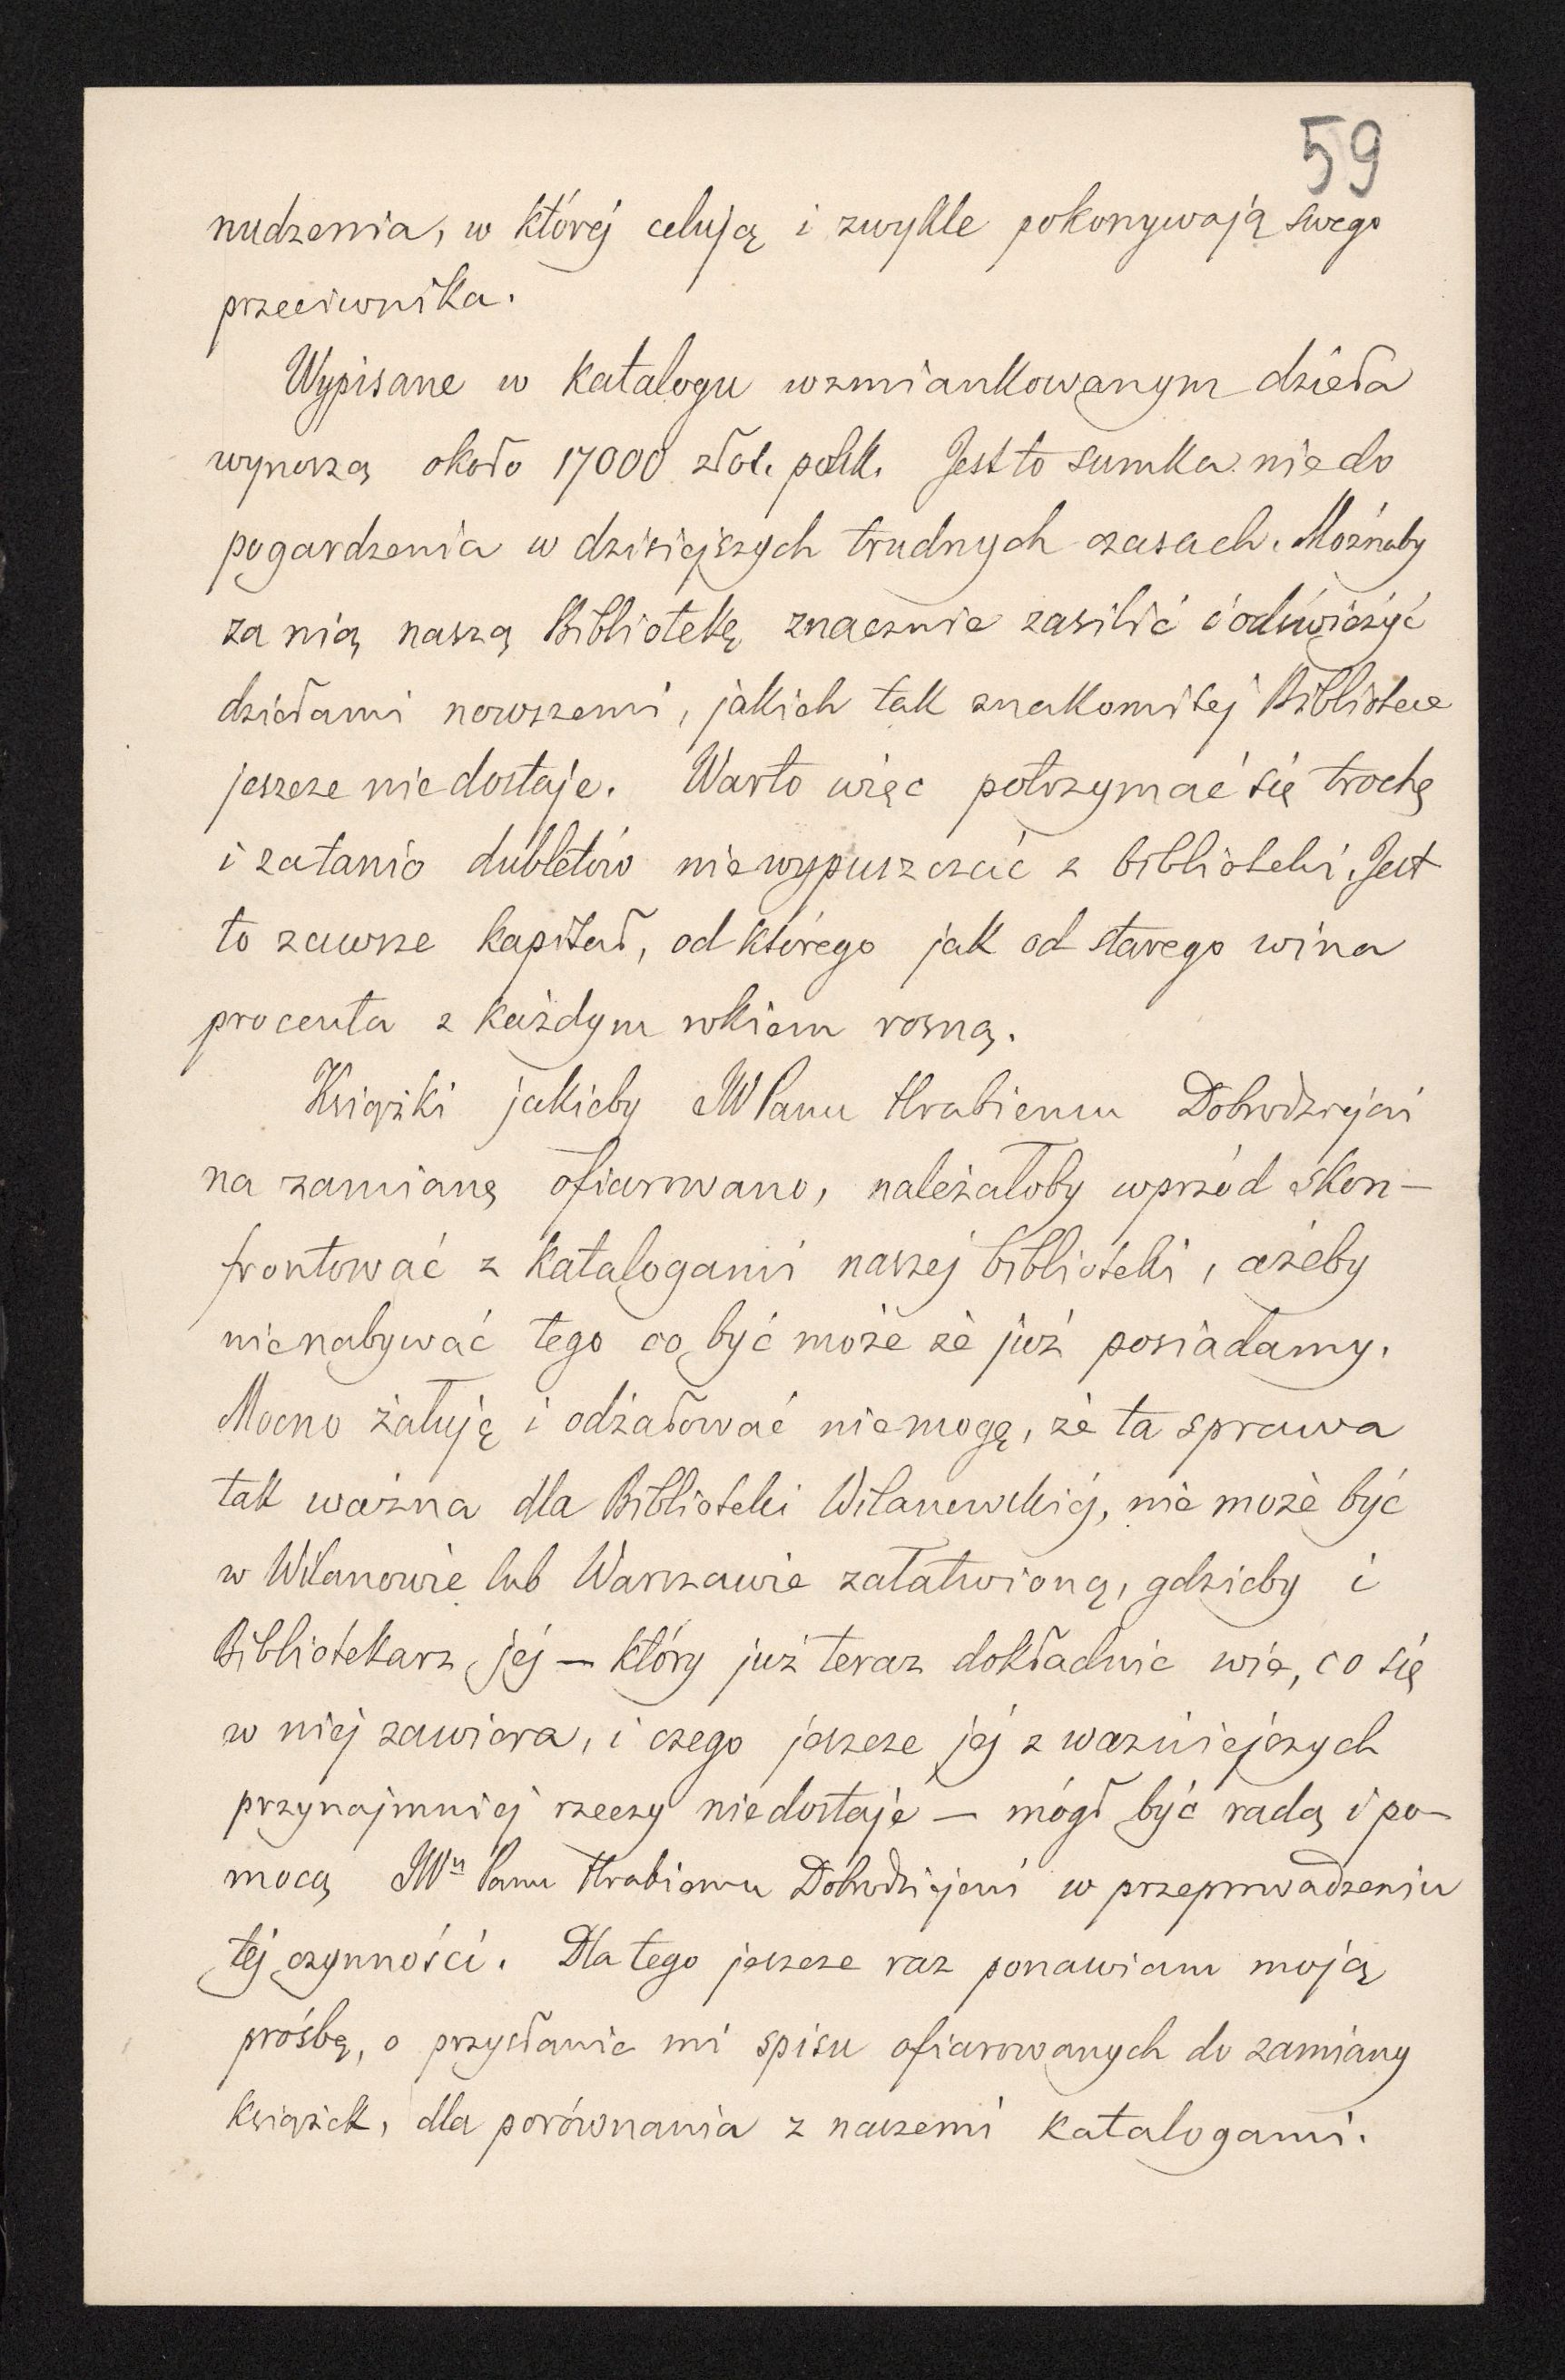 59
nudzenia, w której celują i zwykle pokonywają swego
przeciwnika.
Wypisane w katalogu wzmiankowanym dzieła
wynoszą około 17000 złot. polsk. Jest to sumka nie do
pogardzenia w dzisiejszych trudnych czasach. Możnaby
za nią naszą Bibliotekę znacznie zasilić i odświeżyć
dziełami nowszemi, jakich tak znakomitej Bibliotece
jeszcze niedostaje. Warto więc potrzymać się trochę
i zatanio dubletów niewypuszczać z biblioteki. Jest
to zawsze kapitał, od którego jak od starego wina
procenta z każdym rokiem rosną.
Książki jakieby JW Panu Hrabiemu Dobrodziejowi
na zamianę ofiarowano, należałoby wprzód skon-
frontować z katalogami naszej biblioteki, ażeby
nienabywać tego co być może że już posiadamy.
Mocno żałuję i odżałować niemogę, że ta sprawa
tak ważna dla Biblioteki Wilanowskiej, nie może być
w Wilanowie lub Warszawie załatwioną, gdzieby i
Bibliotekarz jej — który już teraz dokładnie wie, co się
w niej zawiera, i czego jeszcze jej z ważniejszych
przynajmniej rzeczy niedostaje — mógł być radą i po-
mocą JWu Panu Hrabiemu Dobrodziejowi w przeprowadzeniu
tej czynności. Dla tego jeszcze raz ponawiam moją
prośbę, o przysłanie mi spisu ofiarowanych do zamiany
książek, dla porównania z naszemi katalogami.